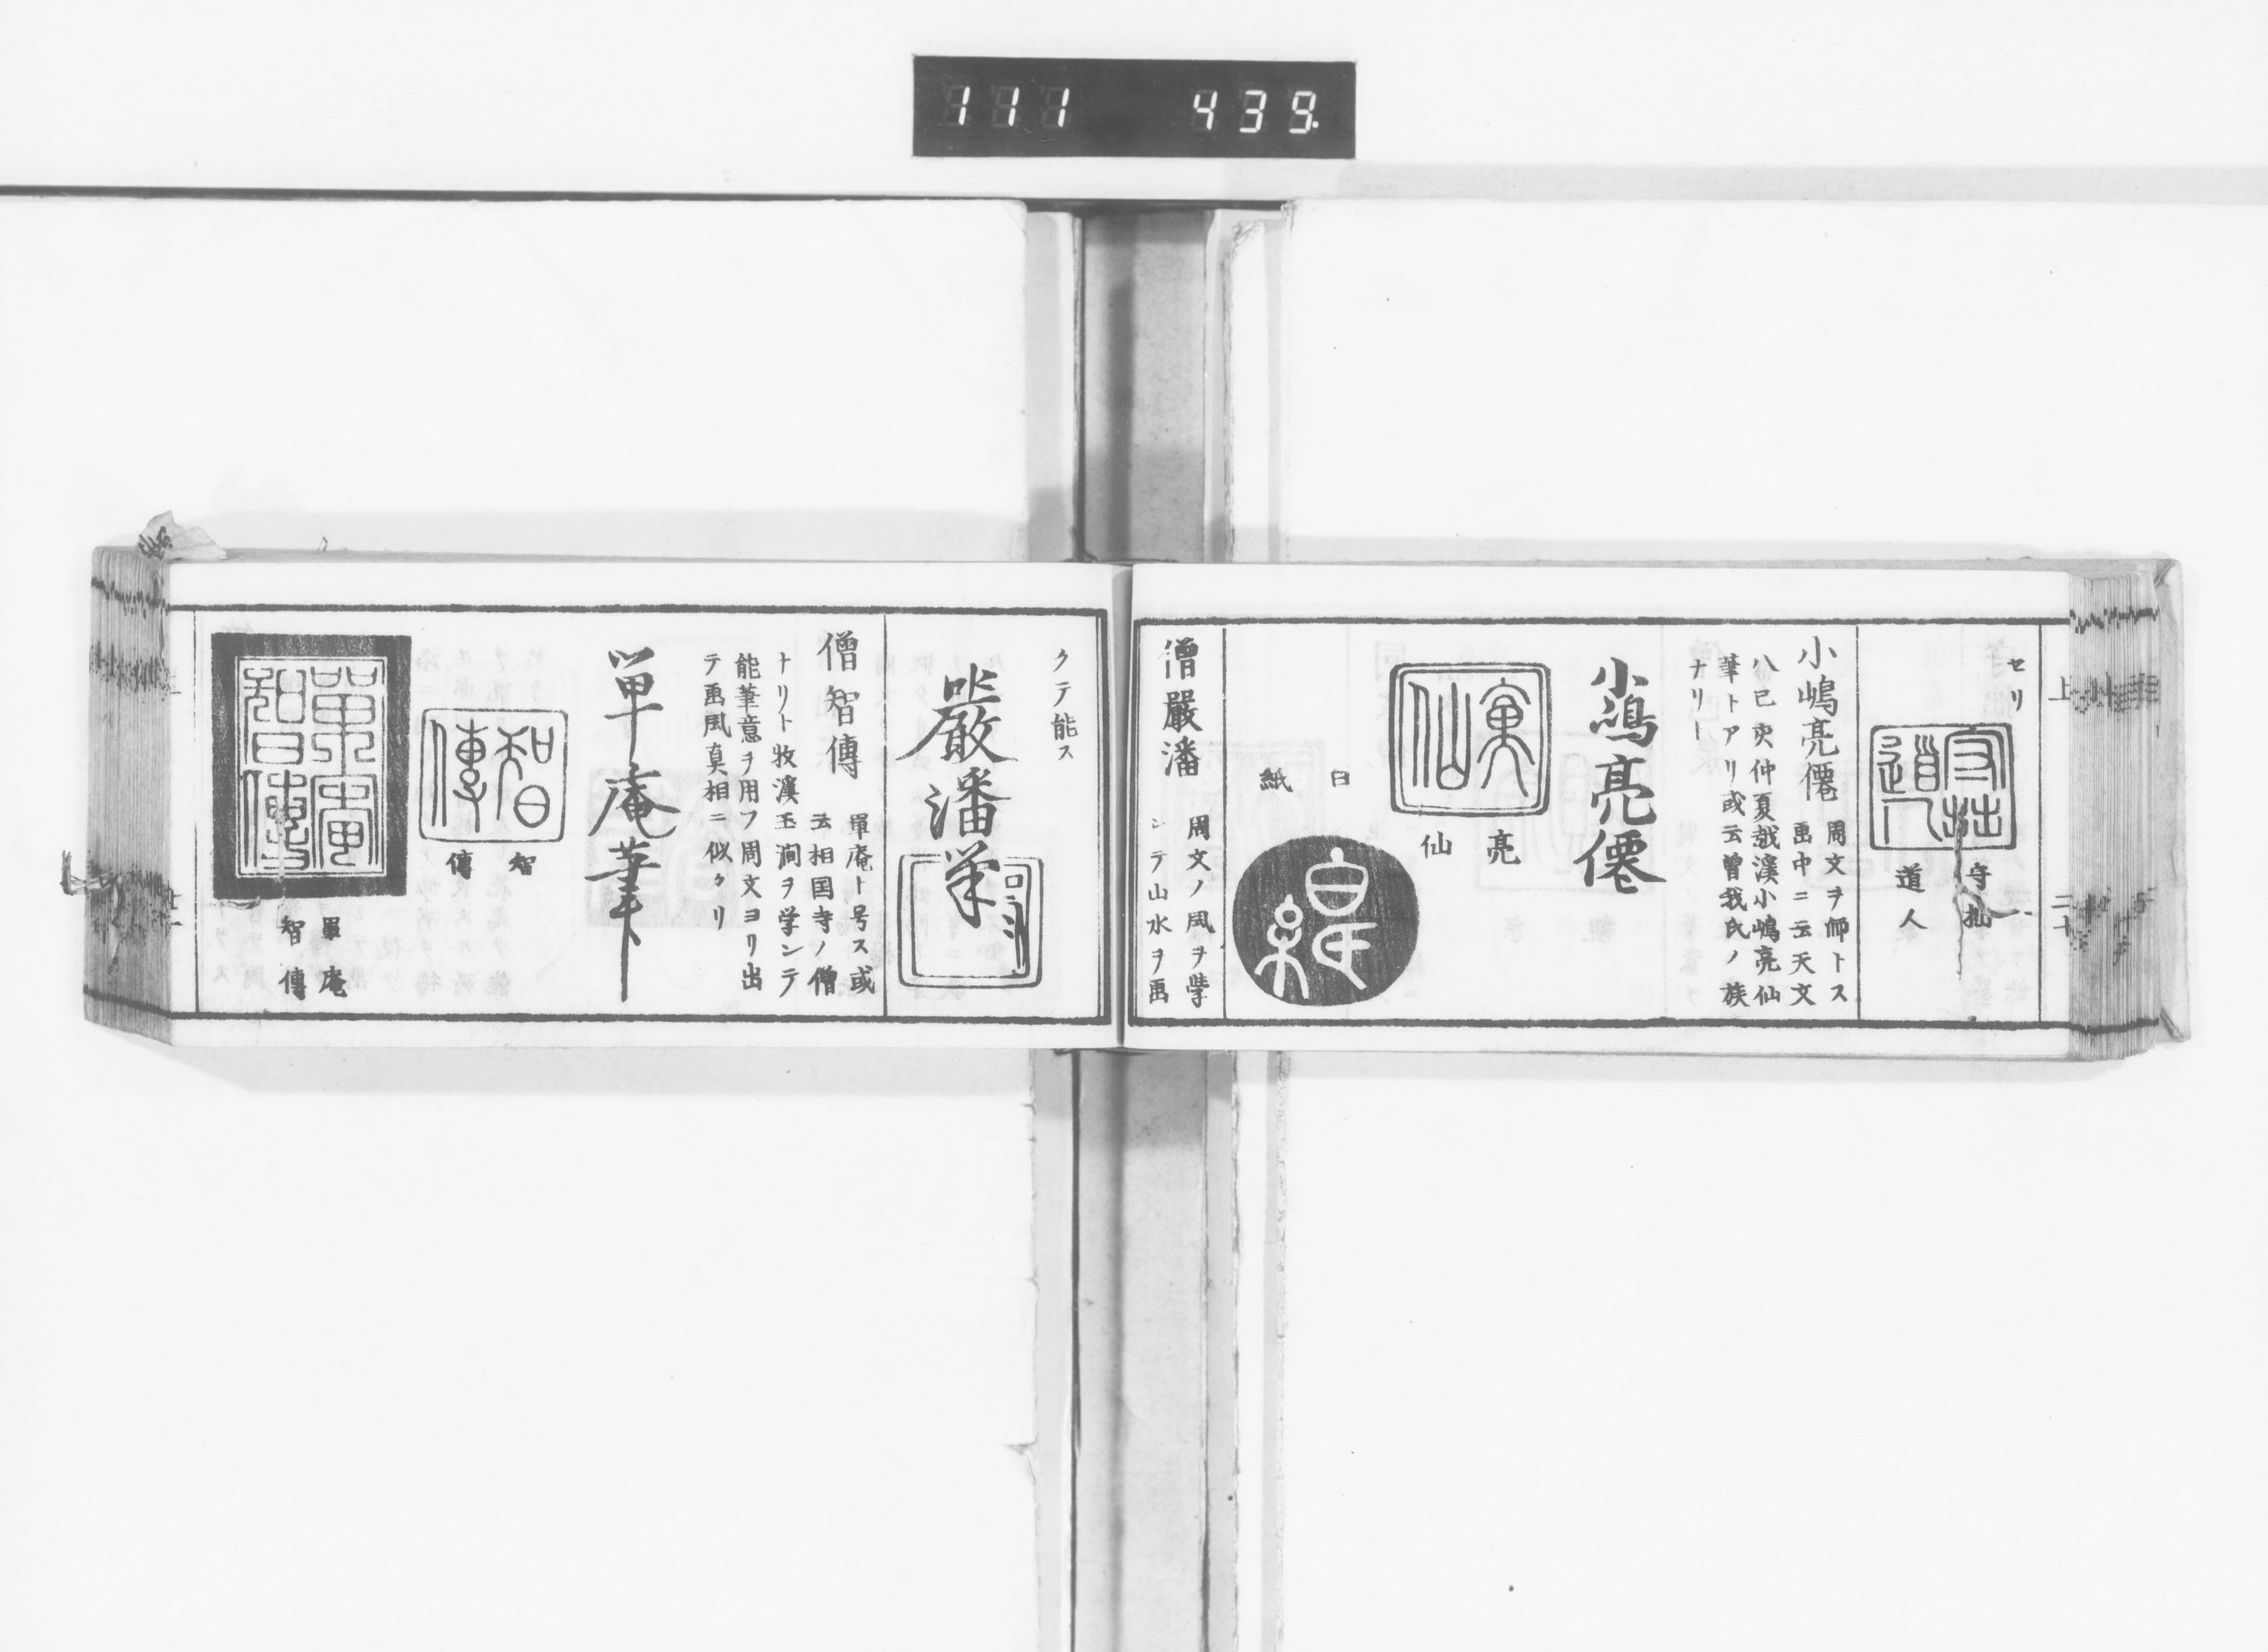 111 439.
上 二十
セリ
守拙
道人
小嶋亮僊
周文ヲ師トス
画中ニ云天文
八己亥仲夏越渓小嶋亮仙
筆トアリ或云曽我氏ノ族
ナリト
小嶋亮僊
亮
仙
僧嚴潘
周文ノ風ヲ學
シテ山水ヲ画
クテ能ス
嚴潘筆
僧智傳
單庵ト号ス或
云相国寺ノ僧
ナリト牧渓玉澗ヲ学ンテ
能筆意ヲ用フ周文ヨリ出
テ画風真相ニ似タリ
単庵筆
智
傳
智傳
單庵
智傳